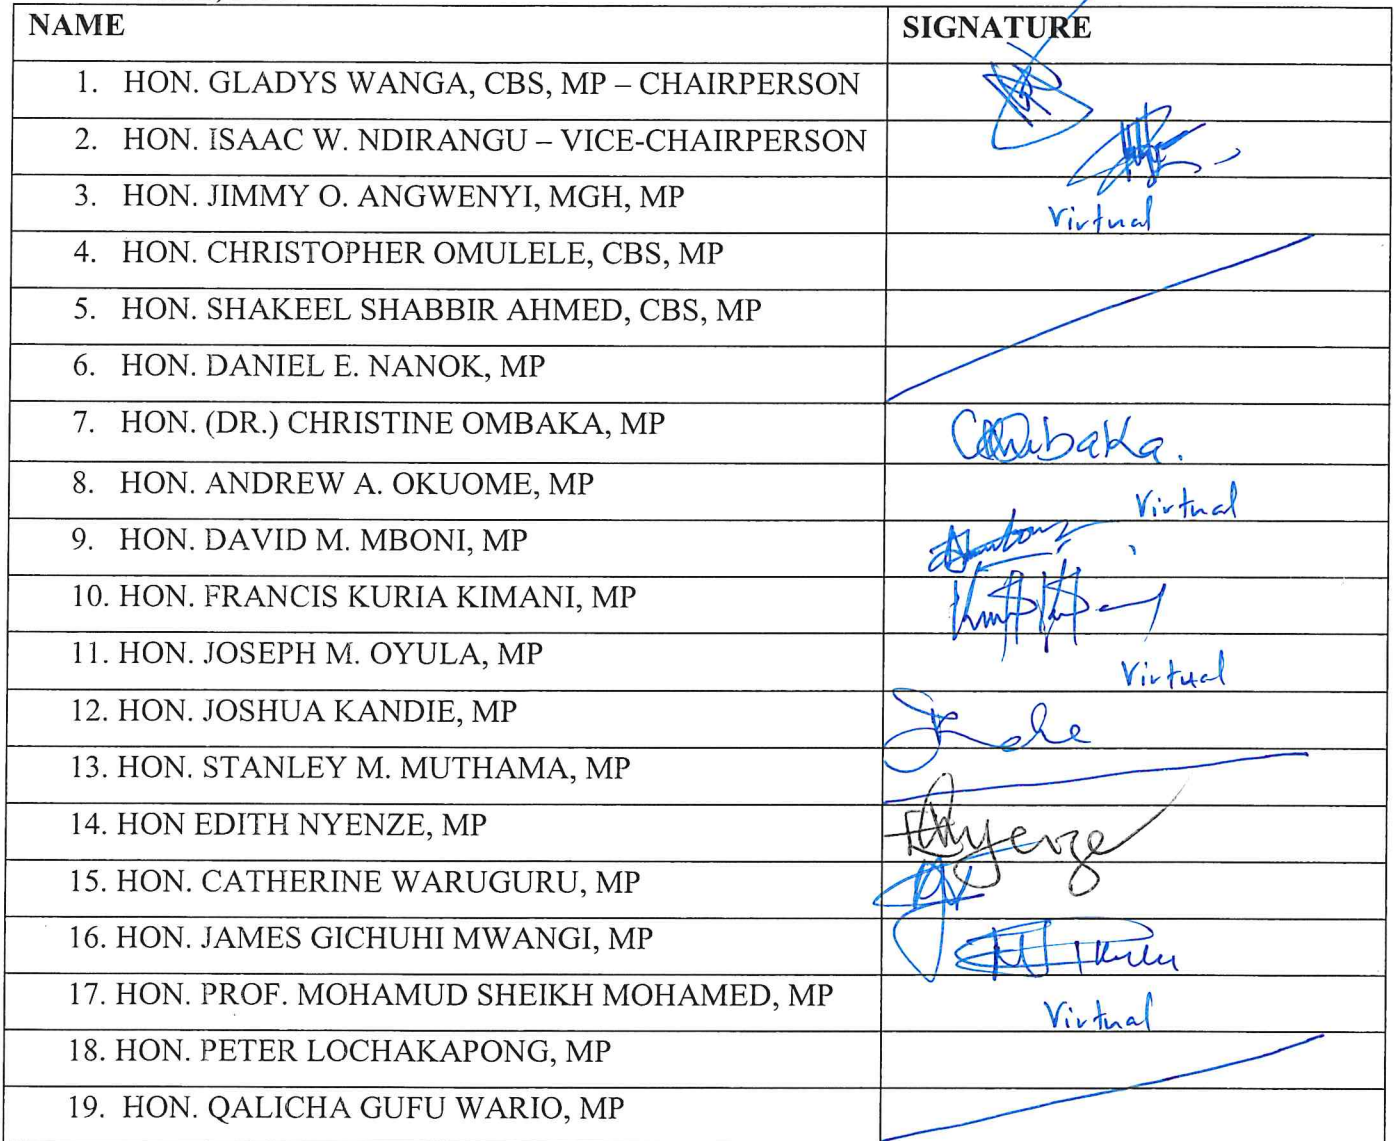 NAME SIGNATURE
1. HON. GLADYS WANGA, CBS, MP – CHAIRPERSON
2. HON. ISAAC W. NDIRANGU – VICE-CHAIRPERSON
3. HON. JIMMY O. ANGWENYI, MGH, MP Virtual
4. HON. CHRISTOPHER OMULELE, CBS, MP
5. HON. SHAKEEL SHABBIR AHMED, CBS, MP
6. HON. DANIEL E. NANOK, MP
7. HON. (DR.) CHRISTINE OMBAKA, MP
8. HON. ANDREW A. OKUOME, MP Virtual
9. HON. DAVID M. MBONI, MP
10. HON. FRANCIS KURIA KIMANI, MP
11. HON. JOSEPH M. OYULA, MP Virtual
12. HON. JOSHUA KANDIE, MP
13. HON. STANLEY M. MUTHAMA, MP
14. HON EDITH NYENZE, MP
15. HON. CATHERINE WARUGURU, MP
16. HON. JAMES GICHUHI MWANGI, MP
17. HON. PROF. MOHAMUD SHEIKH MOHAMED, MP Virtual
18. HON. PETER LOCHAKAPONG, MP
19. HON. QALICHA GUFU WARIO, MP